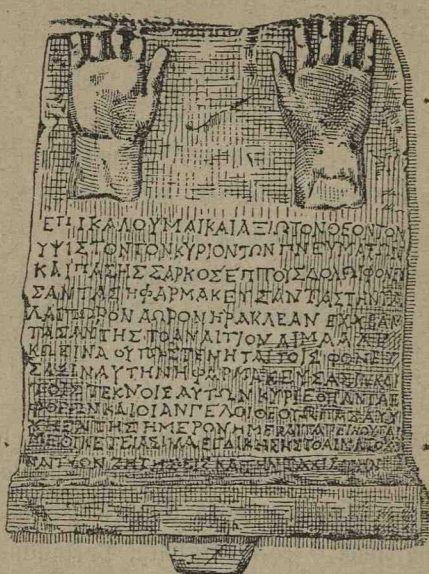 ΕΠΙΚΑΛΟΥΜΑΙΚΑΙΑΞΙΩΤΟΝΘΕΟΝΤΟΝ
ΥΨΙΣΤΟΝΤΟΝΚΥΡΙΟΝΤΩΝΠΝΕΥΜΑΤΩΝ
ΚΑΙΠΑΣΗΣΣΑΡΚΟΣΕΠΙΤΟΥΣΔΟΛΩΙΦΟΝΕΥ
ΣΑΝΤΑΣΗΦΑΡΜΑΚΕΥΣΑΝΤΑΣΤΗΝΤΑ
ΛΑΙΠΩΡΟΝΑΩΡΟΝΗΡΑΚΛΕΑΝΕΧΧΕΑΝ
ΤΑΣΑΥΤΗΣΤΟΑΝΑΙΤΙΟΝΑΙΜΑΑΔΙ
ΚΩΣΙΝΑΟΥΤΩΣΓΕΝΗΤΑΙΤΟΙΣΦΟΝΕΥ
ΣΑΣΙΝΑΥΤΗΝΗΦΑΡΜΑΚΕΥΣΑΣΙΝΚΑΙ
ΤΟΙΣΤΕΚΝΟΙΣΑΥΤΩΝΚΥΡΙΕΟΠΑΝΤΑΕ
ΦΟΡΩΝΚΑΙΟΙΑΝΓΕΛΟΙΘΕΟΥΩΠΑΣΑΨΥ
ΧΗΕΝΤΗΣΗΜΕΡΟΝΗΜΕΡΑΙΤΑΠΕΙΝΟΥΤΑΙ
ΜΕΘΙΚΕΤΕΙΑΣΙΝΑΕΓΔΙΚΗΣΗΣΤΟΑΙΜΑΤΟΑ
ΝΑΙΤΙΟΝΖΗΤΗΣΕΙΣΚΑΙΤΗΝΤΑΧΙΣΤΗΝ